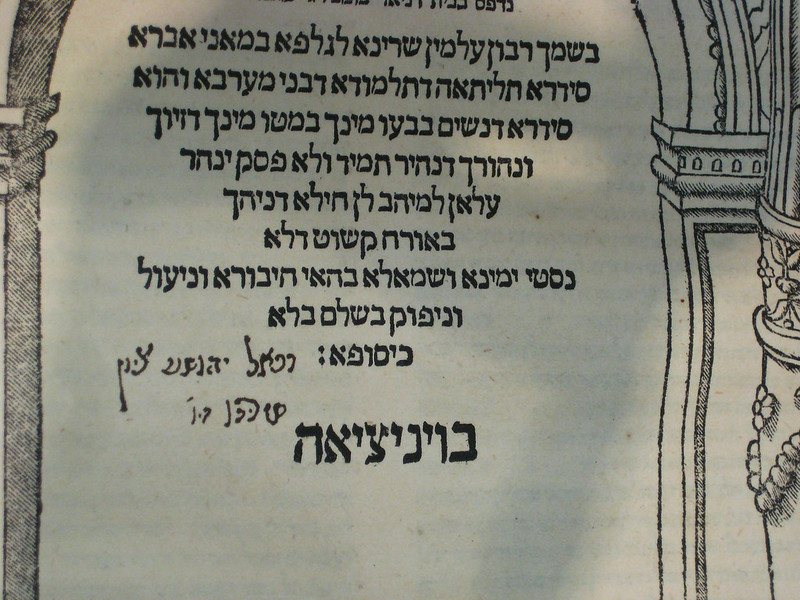 נדפס בבית
בשמך רבון עלמין שרינא לגלפא במאני אברא
סידרא תליתאה דתלמודא דבני מערבא והוא
סידרא דנשים בבעו מינך במטו מינך דזיוך
ונהורך דנהיר תמיד ולא פסק ינהר
עלאן למיהב לן חילא דניהך
באורח קשוט דלא
נסטי ימינא ושמאלא בהאי חיבורא וניעול
וניפוק בשלם בלא
כיסופא:
בויניציאה